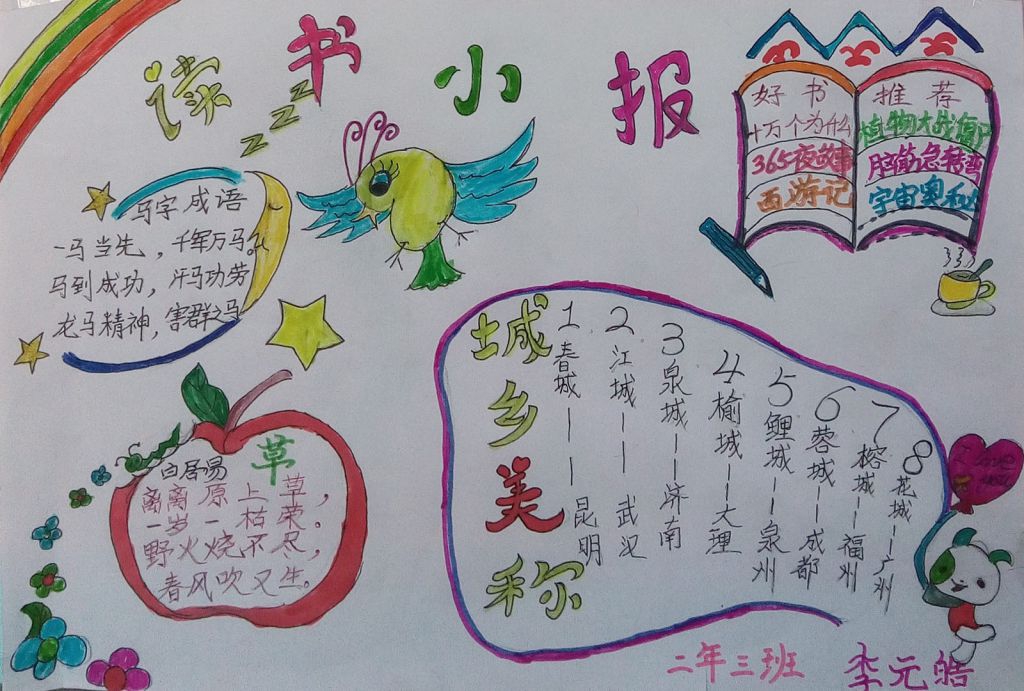 读书小报
zzzz
好书推荐
十万个为什么
植物大战僵尸
365夜故事
脑筋急转弯
西游记
宇宙奥秘
马字成语
一马当先，千军万马。
马到成功，汗马功劳
龙马精神，害群之马
草
白居易
离离原上草，
一岁一枯荣。
野火烧不尽，
春风吹又生。
城乡美称
1春城———昆明
2江城——武汉
3泉城—济南
4榆城—大理
5鲤城—泉州
6蓉城—成都
7榕城—福州
8花城—广州
二年三班 李元皓